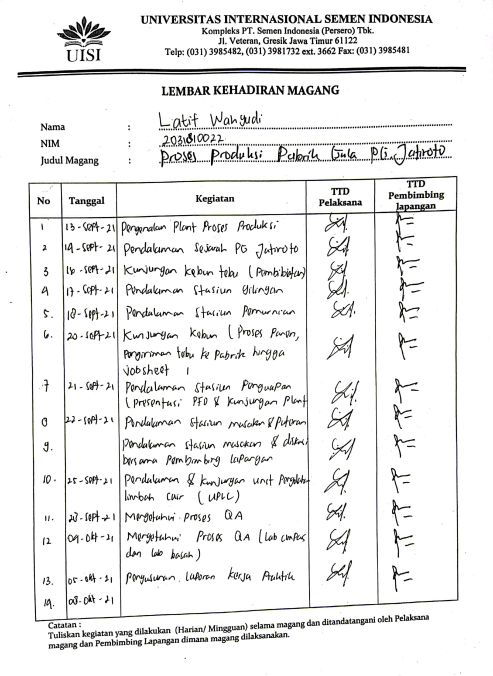 UISI
UNIVERSITAS INTERNASIONAL SEMEN INDONESIA
Kompleks PT. Semen Indonesia (Persero) Tbk.
Jl. Veteran, Gresik Jawa Timur 61122
Telp: (031) 3985482, (031) 3981732 ext. 3662 Fax: (031) 3985481
LEMBAR KEHADIRAN MAGANG
Nama : Latif Wahyudi
NIM : 2031810022
Judul Magang : Proses Produksi Pabrik Gula PG. Jatiroto
No Tanggal Kegiatan TTD Pelaksana TTD Pembimbing lapangan
1 13-Sept-21 Pengenalan Plant Proses Produksi
2 14-Sept-21 Pendalaman Sejarah PG Jatiroto
3 16-Sept-21 Kunjungan Kebun tebu (Pembibitan)
4 17-Sept-21 Pendalaman Stasiun Gilingan
5. 18-Sept-21 Pendalaman Stasiun Pemurnian
6. 20-Sept-21 Kunjungan Kebun (Proses Panen,
Pengiriman tebu ke Pabrik hingga
Jobsheet 1
7 21-Sept-21 Pendalaman Stasiun Penguapan
(Presentasi PFD & Kunjungan Plant
8 22-Sept-21 Pendalaman stasiun masakan & Puteran
9. Pendalaman Stasiun masakan & diskusi
bersama Pembimbing Lapangan
10. 25-Sept-21 Pendalaman & Kunjungan unit Pengolahan
limbah Cair (UPLC)
11. 28-Sept-21 Mengetahui Proses QA
12 04-Okt-21 Mengetahui Proses QA (Lab
dan lab basah)
13. 05-Okt-21 Penyusunan Laporan Kerja Praktik
14. 08-Okt-21
Catatan :
Tuliskan kegiatan yang dilakukan (Harian/ Mingguan) selama magang dan ditandatangani oleh Pelaksana
magang dan Pembimbing Lapangan dimana magang dilaksanakan.